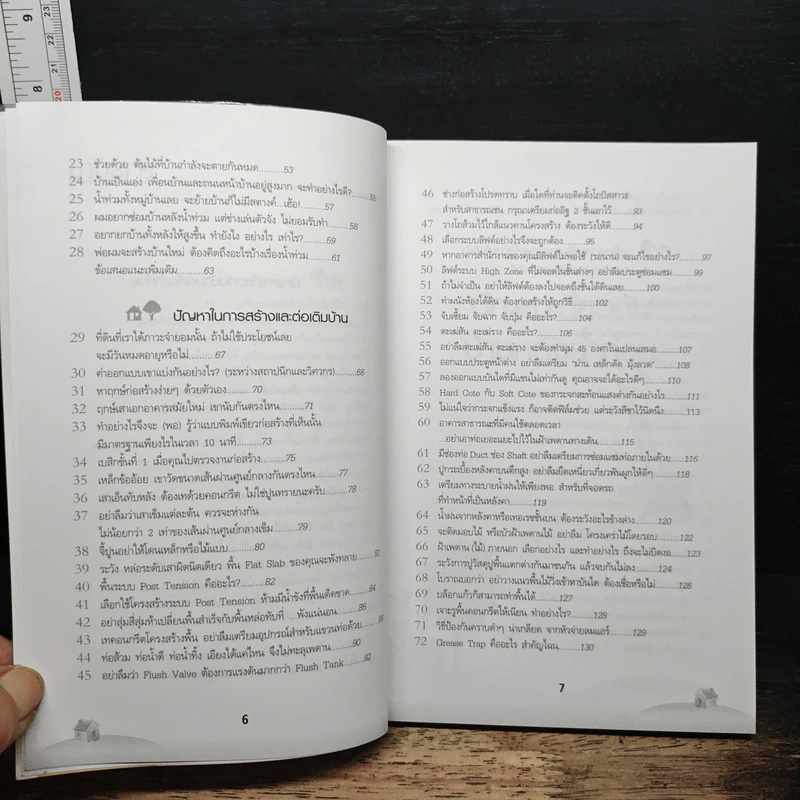 23 ช่วยด้วย ต้นไม้ที่บ้านกำลังจะตายกันหมด..........53
24 บ้านเป็นแอ่ง เพื่อนบ้านและถนนหน้าบ้านอยู่สูงมาก จะทำอย่างไรดี?..........56
25 น้ำท่วมทั้งหมู่บ้านเลย จะย้ายบ้านก็ไม่มีสตางค์...เฮ้อ!..........57
26 ผมอยากซ่อมบ้านหลังน้ำท่วม แต่ช่างเล่นตัวจัง ไม่ยอมรับทำ..........58
27 อยากยกบ้านทั้งหลังให้สูงขึ้น ทำยังไง อย่างไร เท่าไร?..........59
28 พ่อผมจะสร้างบ้านใหม่ ต้องคิดถึงอะไรบ้างเรื่องน้ำท่วม..........61
ข้อเสนอแนะเพิ่มเติม..........63
ปัญหาในการสร้างและต่อเติมบ้าน
29 ที่ดินที่เราได้ภาวะจำยอมนั้น ถ้าไม่ใช้ประโยชน์เลย
จะมีวันหมดอายุหรือไม่..........67
30 ค่าออกแบบเขาแบ่งกันอย่างไร? (ระหว่างสถาปนิกและวิศวกร)..........68
31 หาฤกษ์ก่อสร้างง่ายๆ ด้วยตัวเอง..........70
32 ฤกษ์เสาเอกอาคารสมัยใหม่ เขานับกันตรงไหน..........71
33 ทำอย่างไรจึงจะ (พอ) รู้ว่าแบบพิมพ์เขียวก่อสร้างที่เห็นนั้น
มีมาตรฐานเพียงไรในเวลา 10 นาที..........73
34 เบสิกขั้นที่ 1 เมื่อคุณไปตรวจงานก่อสร้าง..........75
35 เหล็กข้ออ้อย เขาวัดขนาดเส้นผ่านศูนย์กลางกันตรงไหน..........77
36 เสาเอ็นทับหลัง ต้องเทด้วยคอนกรีต ไม่ใช่ปูนทรายนะครับ..........78
37 อย่าลืมว่าเสาเข็มแต่ละต้น ควรจะห่างกัน
ไม่น้อยกว่า 2 เท่าของเส้นผ่านศูนย์กลางเข็ม..........79
38 จี้ปูนอย่าให้โดนเหล็กหรือไม้แบบ..........80
39 ระวัง หล่อระดับเสาผิดนิดเดียว พื้น Flat Slab ของคุณจะพังทลาย..........81
40 พื้นระบบ Post Tension คืออะไร?..........82
41 เลือกใช้โครงสร้างระบบ Post Tension ห้ามมีน้ำขังที่พื้นเด็ดขาด..........84
42 อย่าสุ่มสี่สุ่มห้าเปลี่ยนพื้นสำเร็จกับพื้นหล่อทับที่ ...พังแน่นอน..........86
43 เทคอนกรีตโครงสร้างพื้น อย่าลืมเตรียมอุปกรณ์สำหรับแขวนท่อด้วย..........88
44 ท่อส้วม ท่อน้ำดี ท่อน้ำทิ้ง เอียงได้แค่ไหน จึงไม่ทะลุเพดาน..........90
45 อย่าลืมว่า Flush Valve ต้องการแรงดันมากกว่า Flush Tank..........92
6
46 ช่างก่อสร้างโปรดทราบ เมื่อใดที่ท่านจะติดตั้งโถปัสสาวะ
สำหรับสาธารณชน กรุณาเตรียมก่ออิฐ 2 ชั้นเอาไว้..........93
47 วางโถส้วมไว้ใกล้แนวคานโครงสร้าง ต้องระวังให้ดี..........94
48 เลือกระบบลิฟต์อย่างไรจึงจะถูกต้อง..........95
49 หากอาคารสำนักงานของคุณมีลิฟต์ไม่พอใช้ (รอนาน) จะแก้ไขอย่างไร?..........97
50 ลิฟต์ระบบ High Zone ที่ไม่จอดในชั้นล่างๆ อย่าลืมประตูซ่อมแซม..........99
51 ถ้าไม่จำเป็น อย่าให้ลิฟต์ต้องลงไปจอดถึงชั้นใต้ดินเลย..........100
52 ทำผนังห้องใต้ดิน ต้องก่อสร้างให้ถูกวิธี..........102
53 จับเซี้ยม จับฉาก จับปุ่ม คืออะไร?..........104
54 ตะเฆ่สัน ตะเฆ่ราง คืออะไร?..........106
55 อย่าลืมตะเฆ่สัน ตะเฆ่ราง จะต้องทำมุม 45 องศาในแปลนเสมอ..........107
56 ออกแบบประตูหน้าต่าง อย่าลืมเตรียม “ม่าน เหล็กดัด มุ้งลวด”..........108
57 ลองออกแบบบันไดที่มีแขนไม่เท่ากันดู คุณอาจจะได้อะไรดีๆ..........110
58 Hard Cote กับ Soft Cote ของกระจกสะท้อนแสงต่างกันอย่างไร..........111
59 ไม่แน่ใจว่ากระจกแข็งแรง ก็อาจติดฟิล์มช่วย แต่ระวังสีซาไว้นิดนึง..........113
60 อาคารสาธารณะที่มีคนใช้ตลอดเวลา
...อย่าเอาท่อเยอะแยะไปไว้ในฝ้าเพดานทางเดิน..........115
61 มีช่องท่อ Duct ช่อง Shaft อย่าลืมเตรียมการซ่อมแซมท่อภายในด้วย..........116
62 ปูกระเบื้องหลังคาบนตึกสูง อย่าลืมยึดเหนี่ยวเกี่ยวพันผูกให้ดีๆ..........118
63 เตรียมทางระบายน้ำฝนให้เพียงพอ สำหรับที่จอดรถ
ที่ทำหน้าที่เป็นหลังคา..........119
64 น้ำฝนจากหลังคาหรือเทอเรซชั้นบน ต้องระวังอะไรข้างล่าง..........120
65 จะติดมอบไม้ หรือบัวฝ้าเพดานไม้ อย่าลืม โครงเคร่าไม้โดยรอบ..........122
66 ฝ้าเพดาน (ไม้) ภายนอก เลือกอย่างไร และทำอย่างไร ถึงจะไม่บิดงอ..........123
67 ระวังการปูวัสดุปูพื้นแตกต่างกันมาชนกัน แล้วจบกันไม่ลง..........124
68 โบราณบอกว่า อย่าวางแนวพื้นไม้วิ่งเข้าหาบันได ต้องเชื่อหรือไม่..........126
69 บล็อกแก้วก็สามารถทำพื้นได้..........127
70 เจาะรูพื้นคอนกรีตให้เนียน ทำอย่างไร?..........128
71 วิธีป้องกันคราบดำๆ น่าเกลียด จากหัวจ่ายลมแอร์..........129
72 Grease Trap คืออะไร สำคัญไฉน..........130
7
9
8
23
22
21
20